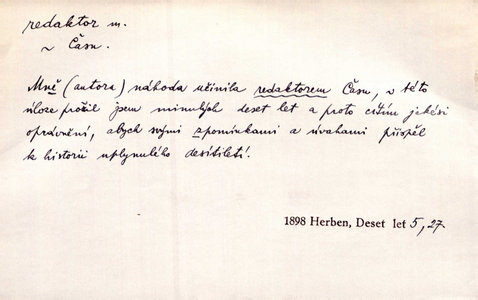 redaktor m.
~ Času.
Mně (autora) náhoda učinila redaktorem Času, v této
úloze prožil jsem minulých deset let a proto cítím jakési
oprávnění, abych svými vzpomínkami a úvahami přispěl
k historii uplynulého desítiletí.
1898 Herben, Deset let 5, 27